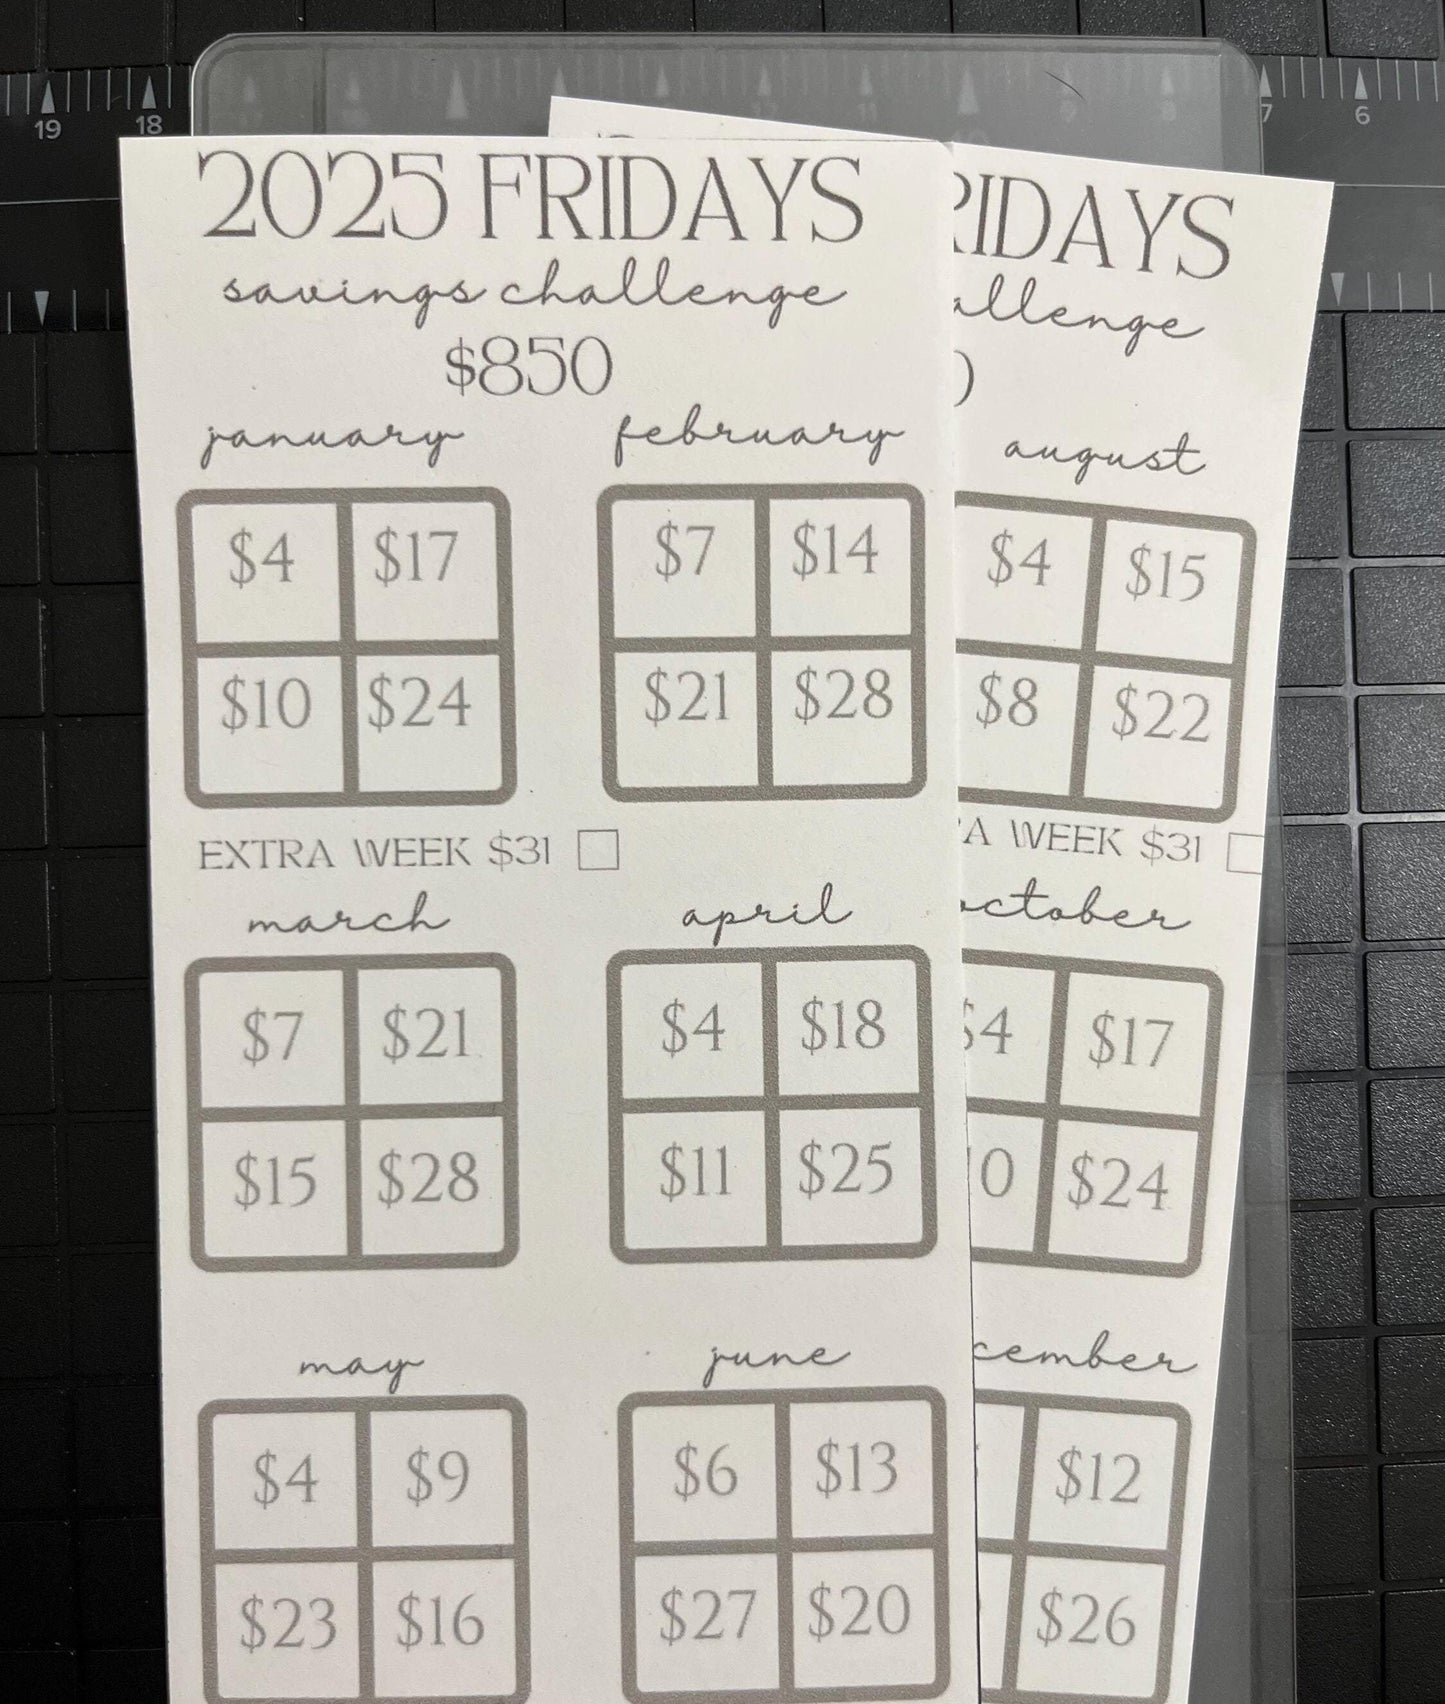 2025 FRIDAYS
savings challenge
$850
january february
$4 $17 $7 $14
$10 $24 $21 $28
EXTRA WEEK $31
march april
$7 $21 $4 $18
$15 $28 $11 $25
may june
$4 $9 $6 $13
$23 $16 $27 $20
RIDAYS
allenge
0
august
$4 $15
$8 $22
A WEEK $31
october
$4 $17
0 $24
cember
$12
$26
19 18 7 6